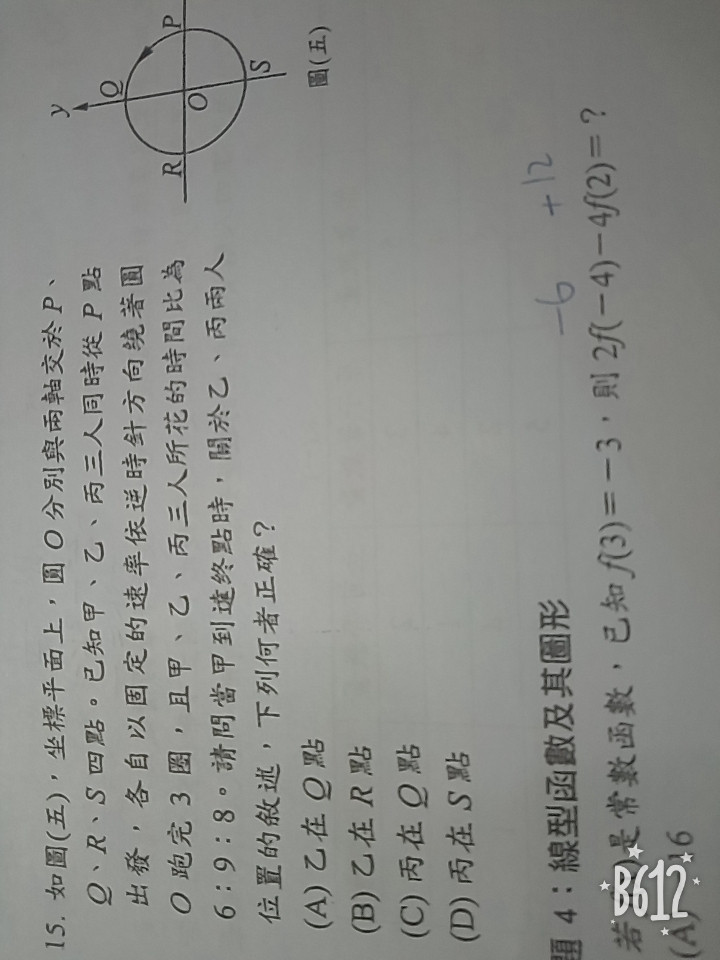 15. 如圖(五)，坐標平面上，圓 O 分別與兩軸交於 P、
Q、R、S 四點。已知甲、乙、丙三人同時從 P 點
出發，各自以固定的速率依逆時針方向繞著圓
O 跑完 3 圈，且甲、乙、丙三人所花的時間比為
6：9：8。請問當甲到達終點時，關於乙、丙兩人
位置的敘述，下列何者正確？
(A) 乙在 Q 點
(B) 乙在 R 點
(C) 丙在 Q 點
(D) 丙在 S 點
y
Q
P
R
O
S
圖(五)
題 4：線型函數及其圖形
-6 +12
若 )是常數函數，已知 f(3)=-3，則 2f(-4)-4f(2)=？
(A) 16
B612